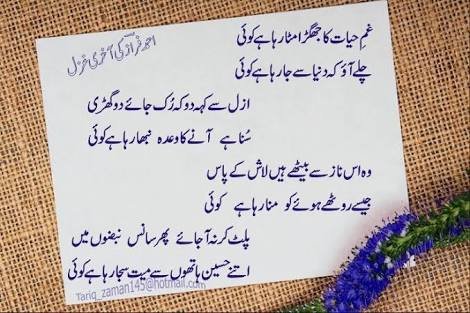 احمد فراز کی آخری غزل
غمِ حیات کا جھگڑا مٹا رہا ہے کوئی
چلے آؤ کہ دنیا سے جا رہا ہے کوئی
ازل سے کہہ دو کہ رُک جائے دو گھڑی
سُنا ہے آنے کا وعدہ نبھا رہا ہے کوئی
وہ اس ناز سے بیٹھے ہیں لاش کے پاس
جیسے روٹھے ہوئے کو منا رہا ہے کوئی
پلٹ کر نہ آ جائے پھر سانس نبضوں میں
اتنے حسین ہاتھوں سے میت سجا رہا ہے کوئی
Tariq_zaman145@hotmail.com